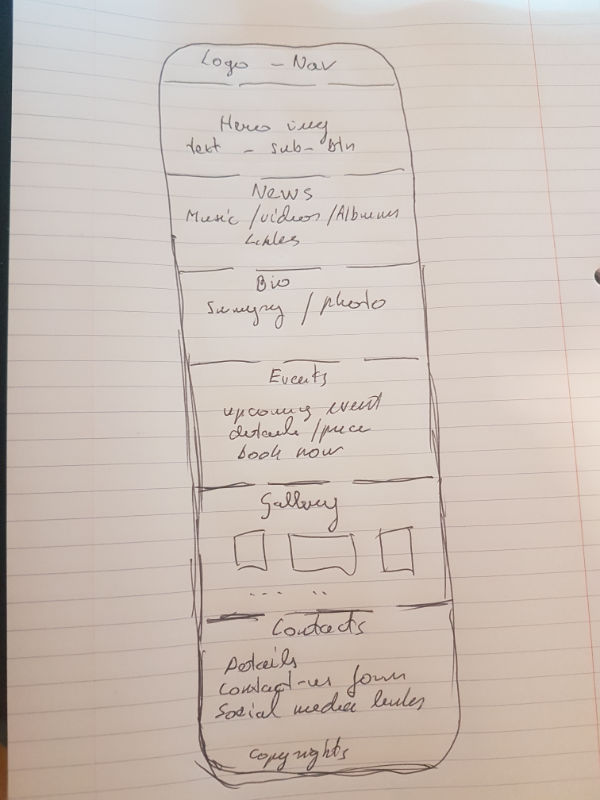 Logo - Nav
Hero img
text - sub - btn
News
Music / videos / Albums
Bio
/ photo
Events
upcoming event
details / price
book now
Gallery
Contacts
Details
Contact-us form
Social media links
Copyrights